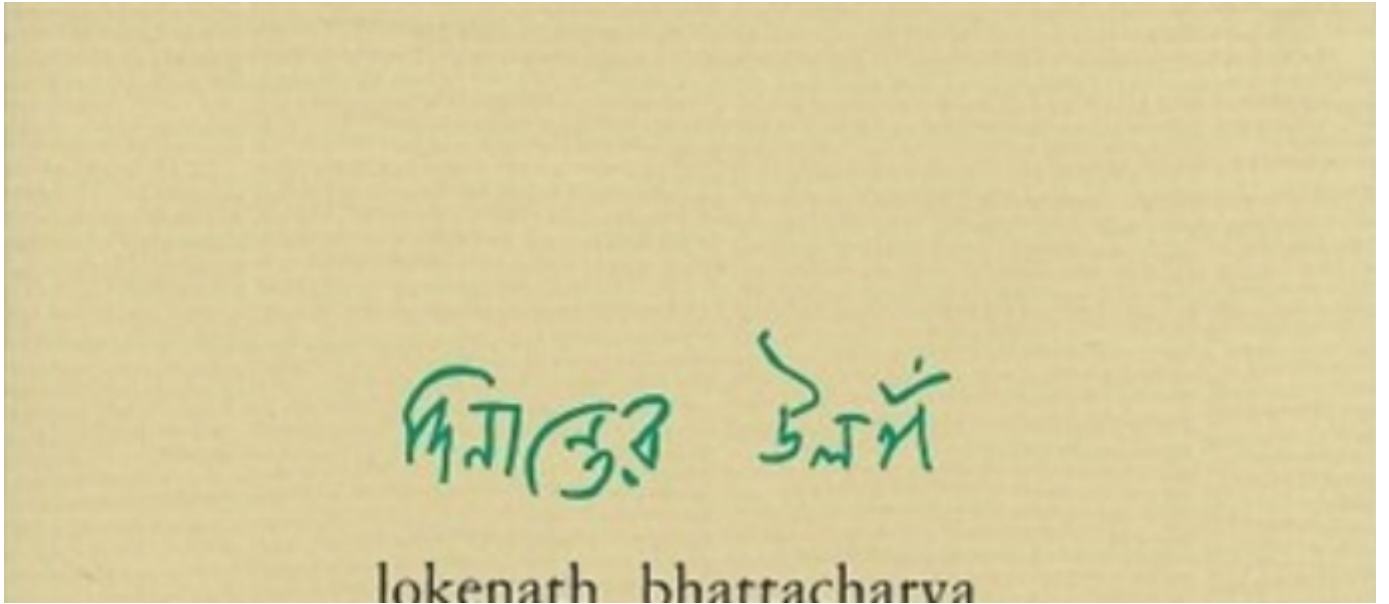 দিনান্তের
lokenath bhattacharya